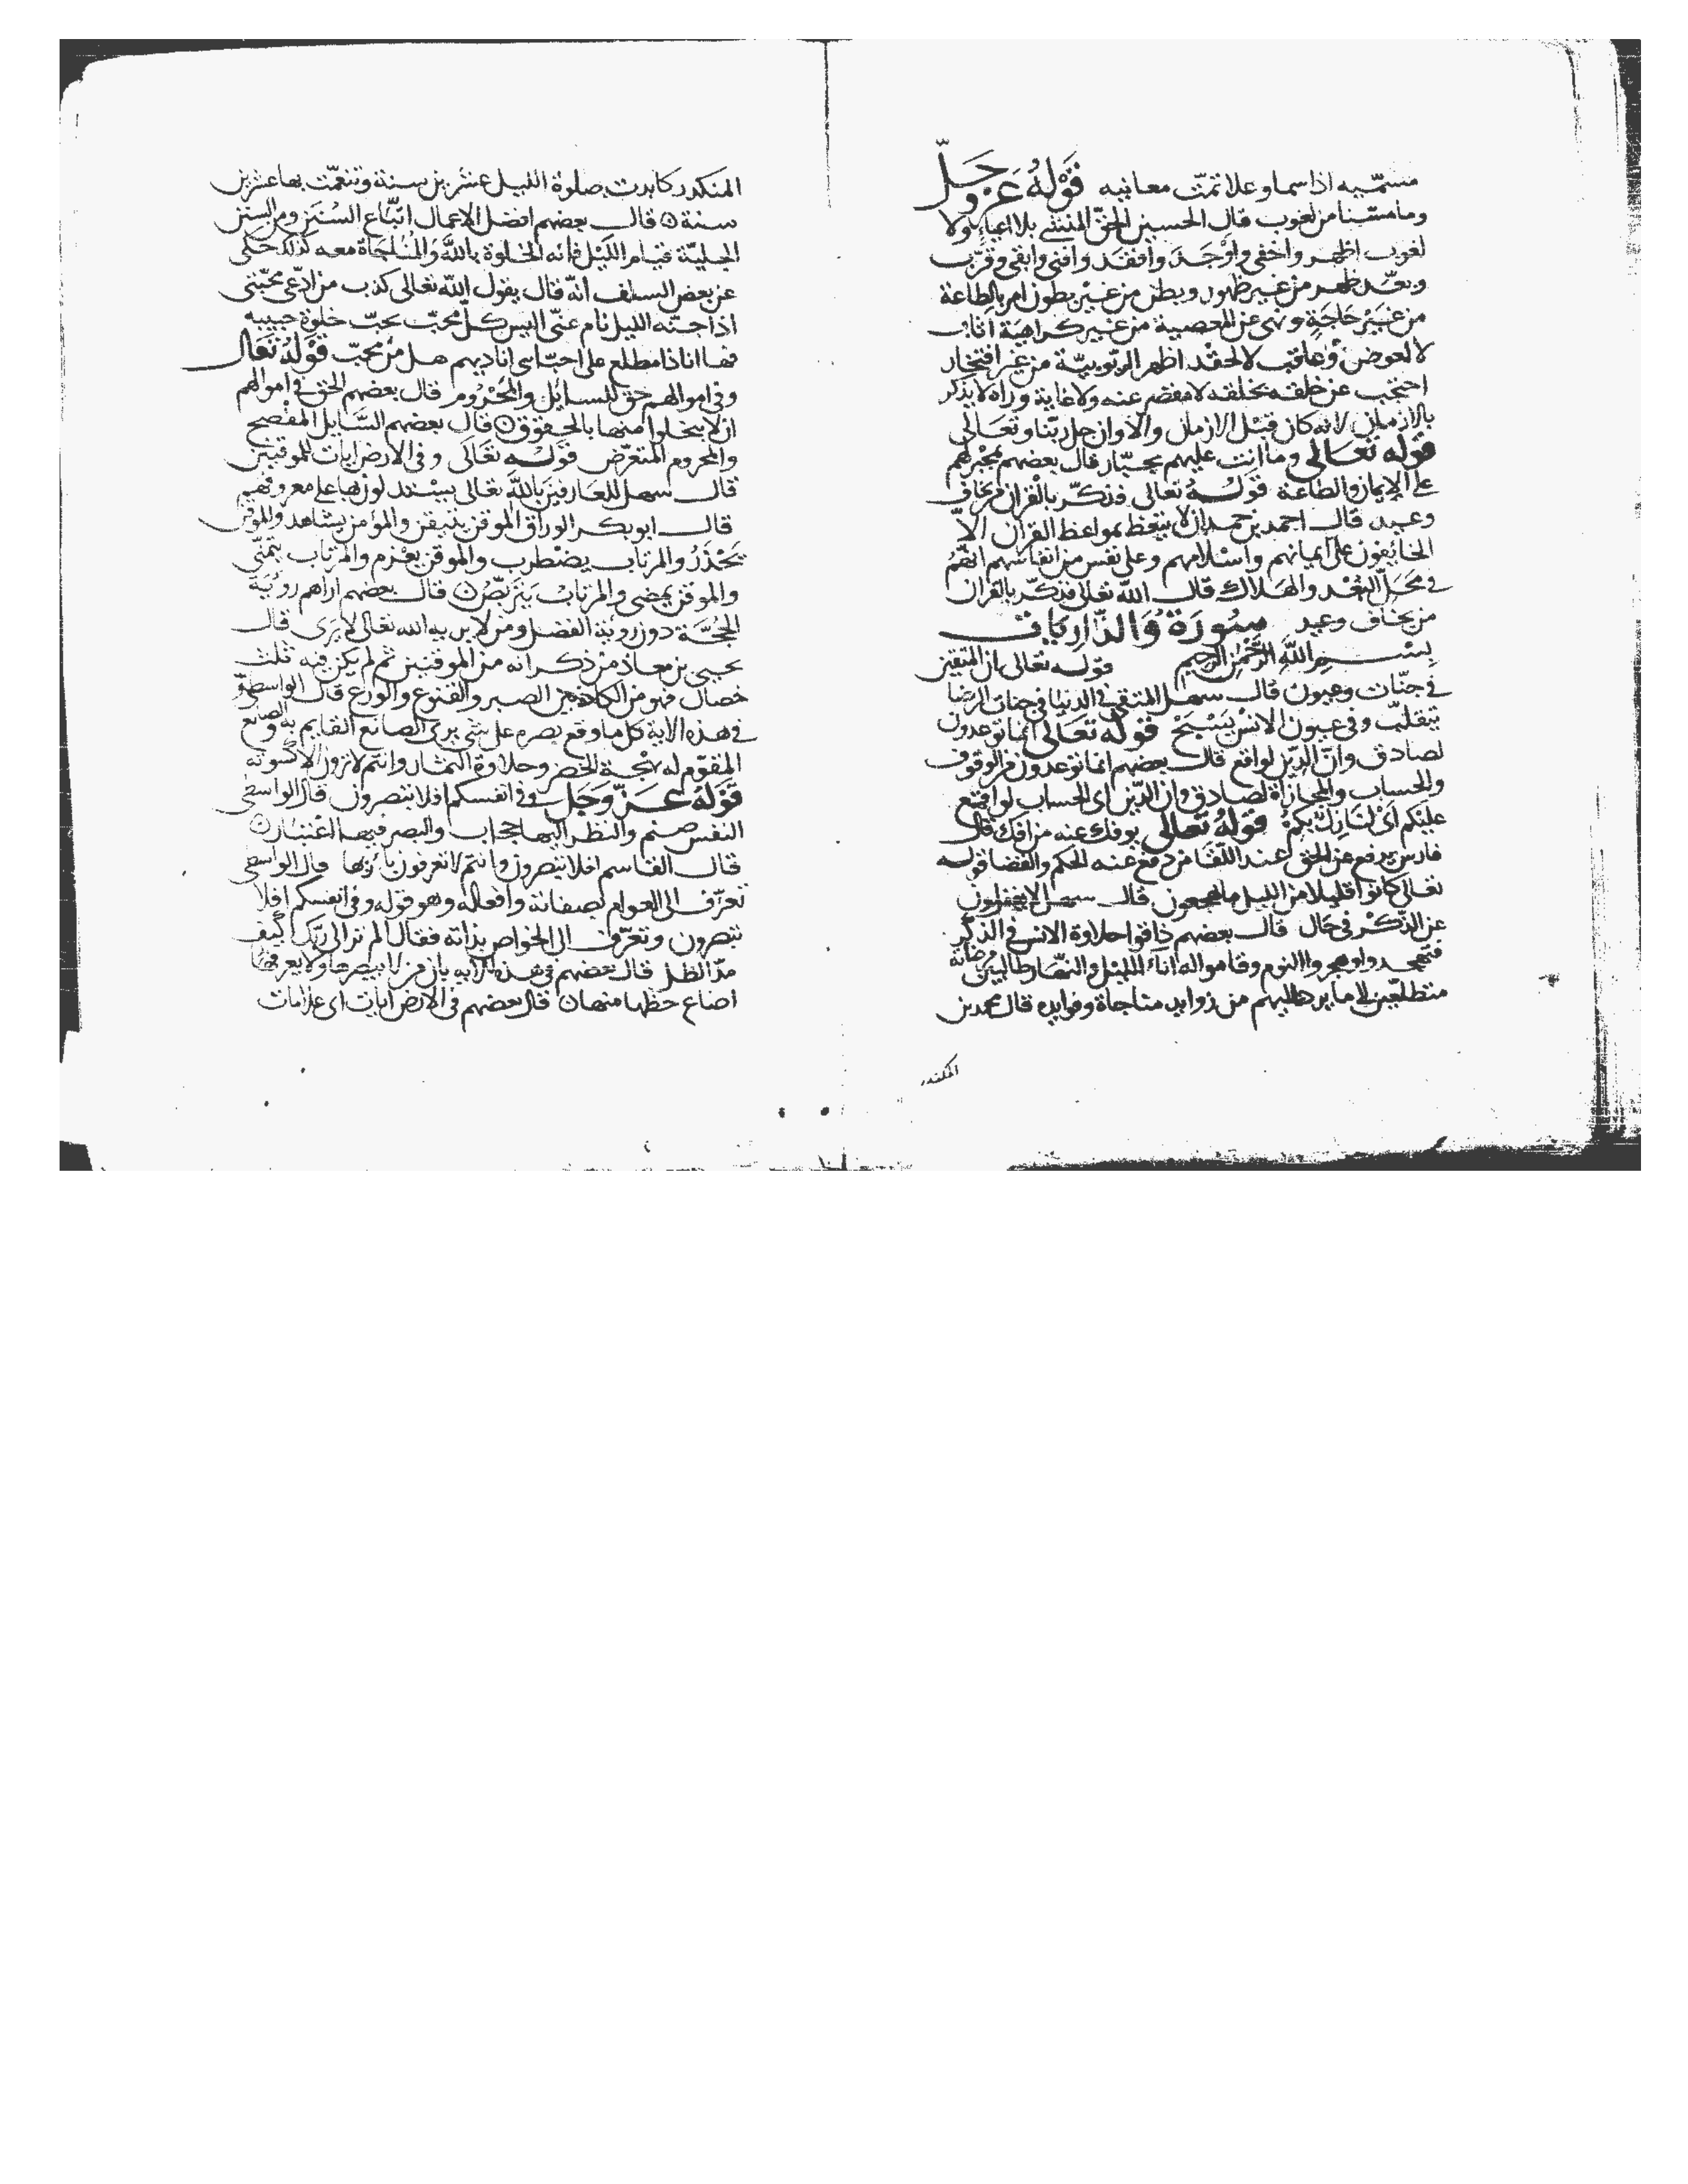 مسمّيه اذا سما وعلا تمّت معانيه قَوْلُهُ عَزَّ وَجَلَّ
وما مسّنا من لغوب قال الحسين الحقّ المنشئ بلا اعياء ولا
لغوب اظهر واخفى واوجد وافقد وافنى وابقى وقرّب
وبعّد ظهر من غير ظهور وبطن من غير بطون امر بالطاعة
من غير حاجة ونهى عن المعصية من غير كراهية اثاب
لا لعوض وعاقب لا لحقد اظهر الربوبيّة من غير افتخار
احتجب عن خلقه بخلقه لا مفصح عنه ولا غاية وراه لا يدرك
بالازمان لانه كان قبل الازمان والاوان جل ربّنا وتعالى
قوله تعالى وما انت عليهم بجبّار قال بعضهم مجبرهم
على الايمان والطاعة قوله تعالى فذكّر بالقران من يخاف
وعيد قال احمد بن حمدان لا يتعظ بمواعظ القران الاّ
الخايفون على ايمانهم واسلامهم وعلى نفس من انفاسهم انهم
في محل البعد والهلاك قال الله تعالى فذكّر بالقران
من يخاف وعيد سُورَةُ وَالذَّارِيَات
بسم الله الرحمن الرحيم قوله تعالى ان المتقين
في جنّات وعيون قال سهل المتقى في الدنيا في جنات الرضا
يتقلّب وفي عيون الانس يسبح قوله تعالى انما توعدون
لصادق وانّ الدّين لواقع قال بعضهم انما توعدون من الوقوف
والحساب والمجازاة لصادق وان الدّين اى الحساب لواقع
عليكم اى لنازل بكم قوله تعالى يوفك عنه من افك قال
فارس يدفع عن الحق عند اللقا من دفع عنه الحكم والقضا قوله
تعالى كانوا قليلا من الليل ما يهجعون قال سهل لا يغفلون
عن الذكر في حال قال بعضهم ذاقوا حلاوة الانس في الذكر
فتهجدوا وهجروا النوم وقاموا له اناء الليل والنهار طالبين مرضاته
متطلعين لما يرد عليهم من زوايد مناجاة وفوايده قال محمد بن
المنكدر
المنكدر كابدت صلوة الليل عشرين سنة وتنعّمت بها عشرين
سنة قال بعضهم افضل الاعمال اتّباع السنن ومن السنن
الجليّة قيام الليل فانه الخلوة بالله والمناجاة معه كذلك حكى
عن بعض السلف انّه قال يقول الله تعالى كذب من ادّعى محبّتى
اذا جنّه الليل نام عنّى اليس كلّ محبّ يحبّ خلوة حبيبه
فها انا ذا مطلع على احبّاى اناديهم هل من محبّ قوله تعالى
وفي اموالهم حق للسايل والمحروم قال بعضهم الحق في اموالهم
ان لا يبخلوا منها بالحقوق قال بعضهم السّايل المفصح
والمحروم المتعرّض قوله تعالى وفي الارض ايات للموقنين
قال سهل للعارفين بالله تعالى يستدلون بها على معروفهم
قال ابو بكر الوراق الموقن يتيقن والمؤمن يشاهد والموقن
يحذر والمرتاب يضطرب والموقن يعزم والمرتاب يتمنّى
والموقن يمضى والمرتاب يتربّص قال بعضهم اراهم روية
الحجّة دون روية الفضل ومن لا يريه الله تعالى لا يرى قال
يحيى بن معاذ من ذكر انه من الموقنين ثم لم يكن فيه ثلث
خصال فهو من الكاذبين الصبر والقنوع والورع قال الواسطى
في هذه الاية كل ما وقع بصره على شى يرى الصانع القايم به وضع
المقوّم له بهجة الخضر وحلاوة الثمار وانتم لا ترون الا كسوته
قوله عزّ وجلّ وفي انفسكم افلا تبصرون قال الواسطى
النفس صنم والنظر اليها حجاب والبصر فيها اعتبار
قال القاسم افلا تبصرون وانتم لا تعرفون بارئها قال الواسطى
تعرّف الى العوام بصفاته وافعاله وهو قوله وفي انفسكم افلا
تبصرون وتعرّف الى الخواص بذاته فقال الم تر الى ربّك كيف
مدّ الظل قال بعضهم في هذه الاية بان من لا يبصرها ولا يعرفها
اضاع حظها منها قال بعضهم في الارض ايات اى علامات